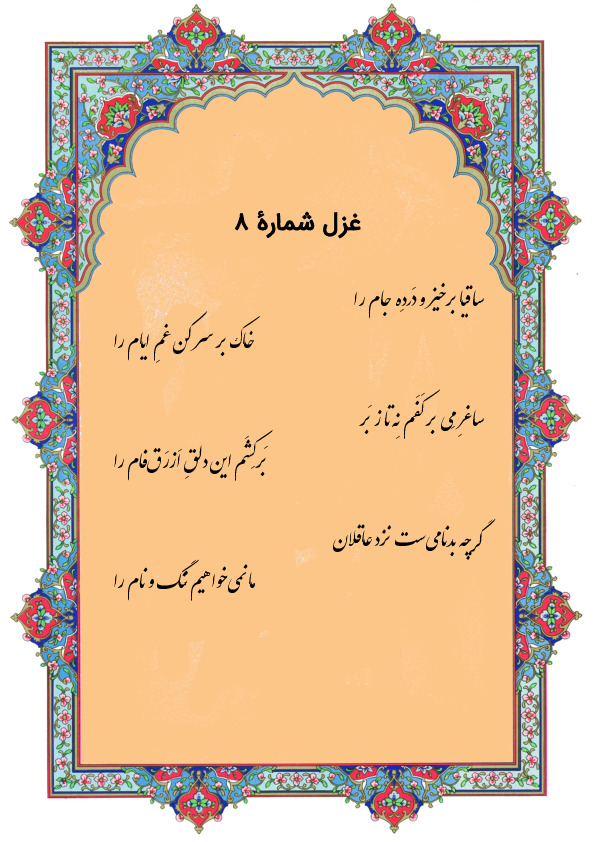 غزل شمارهٔ ۸
ساقیا برخیز و دَردِه جام را
خاک بر سر کن غمِ ایام را
ساغرِ می بر کَفَم نِه تا ز بَر
بَرکِشَم این دلقِ اَزرَق‌فام را
گرچه بدنامی‌ست نزد عاقلان
ما نمی‌خواهیم ننگ و نام را